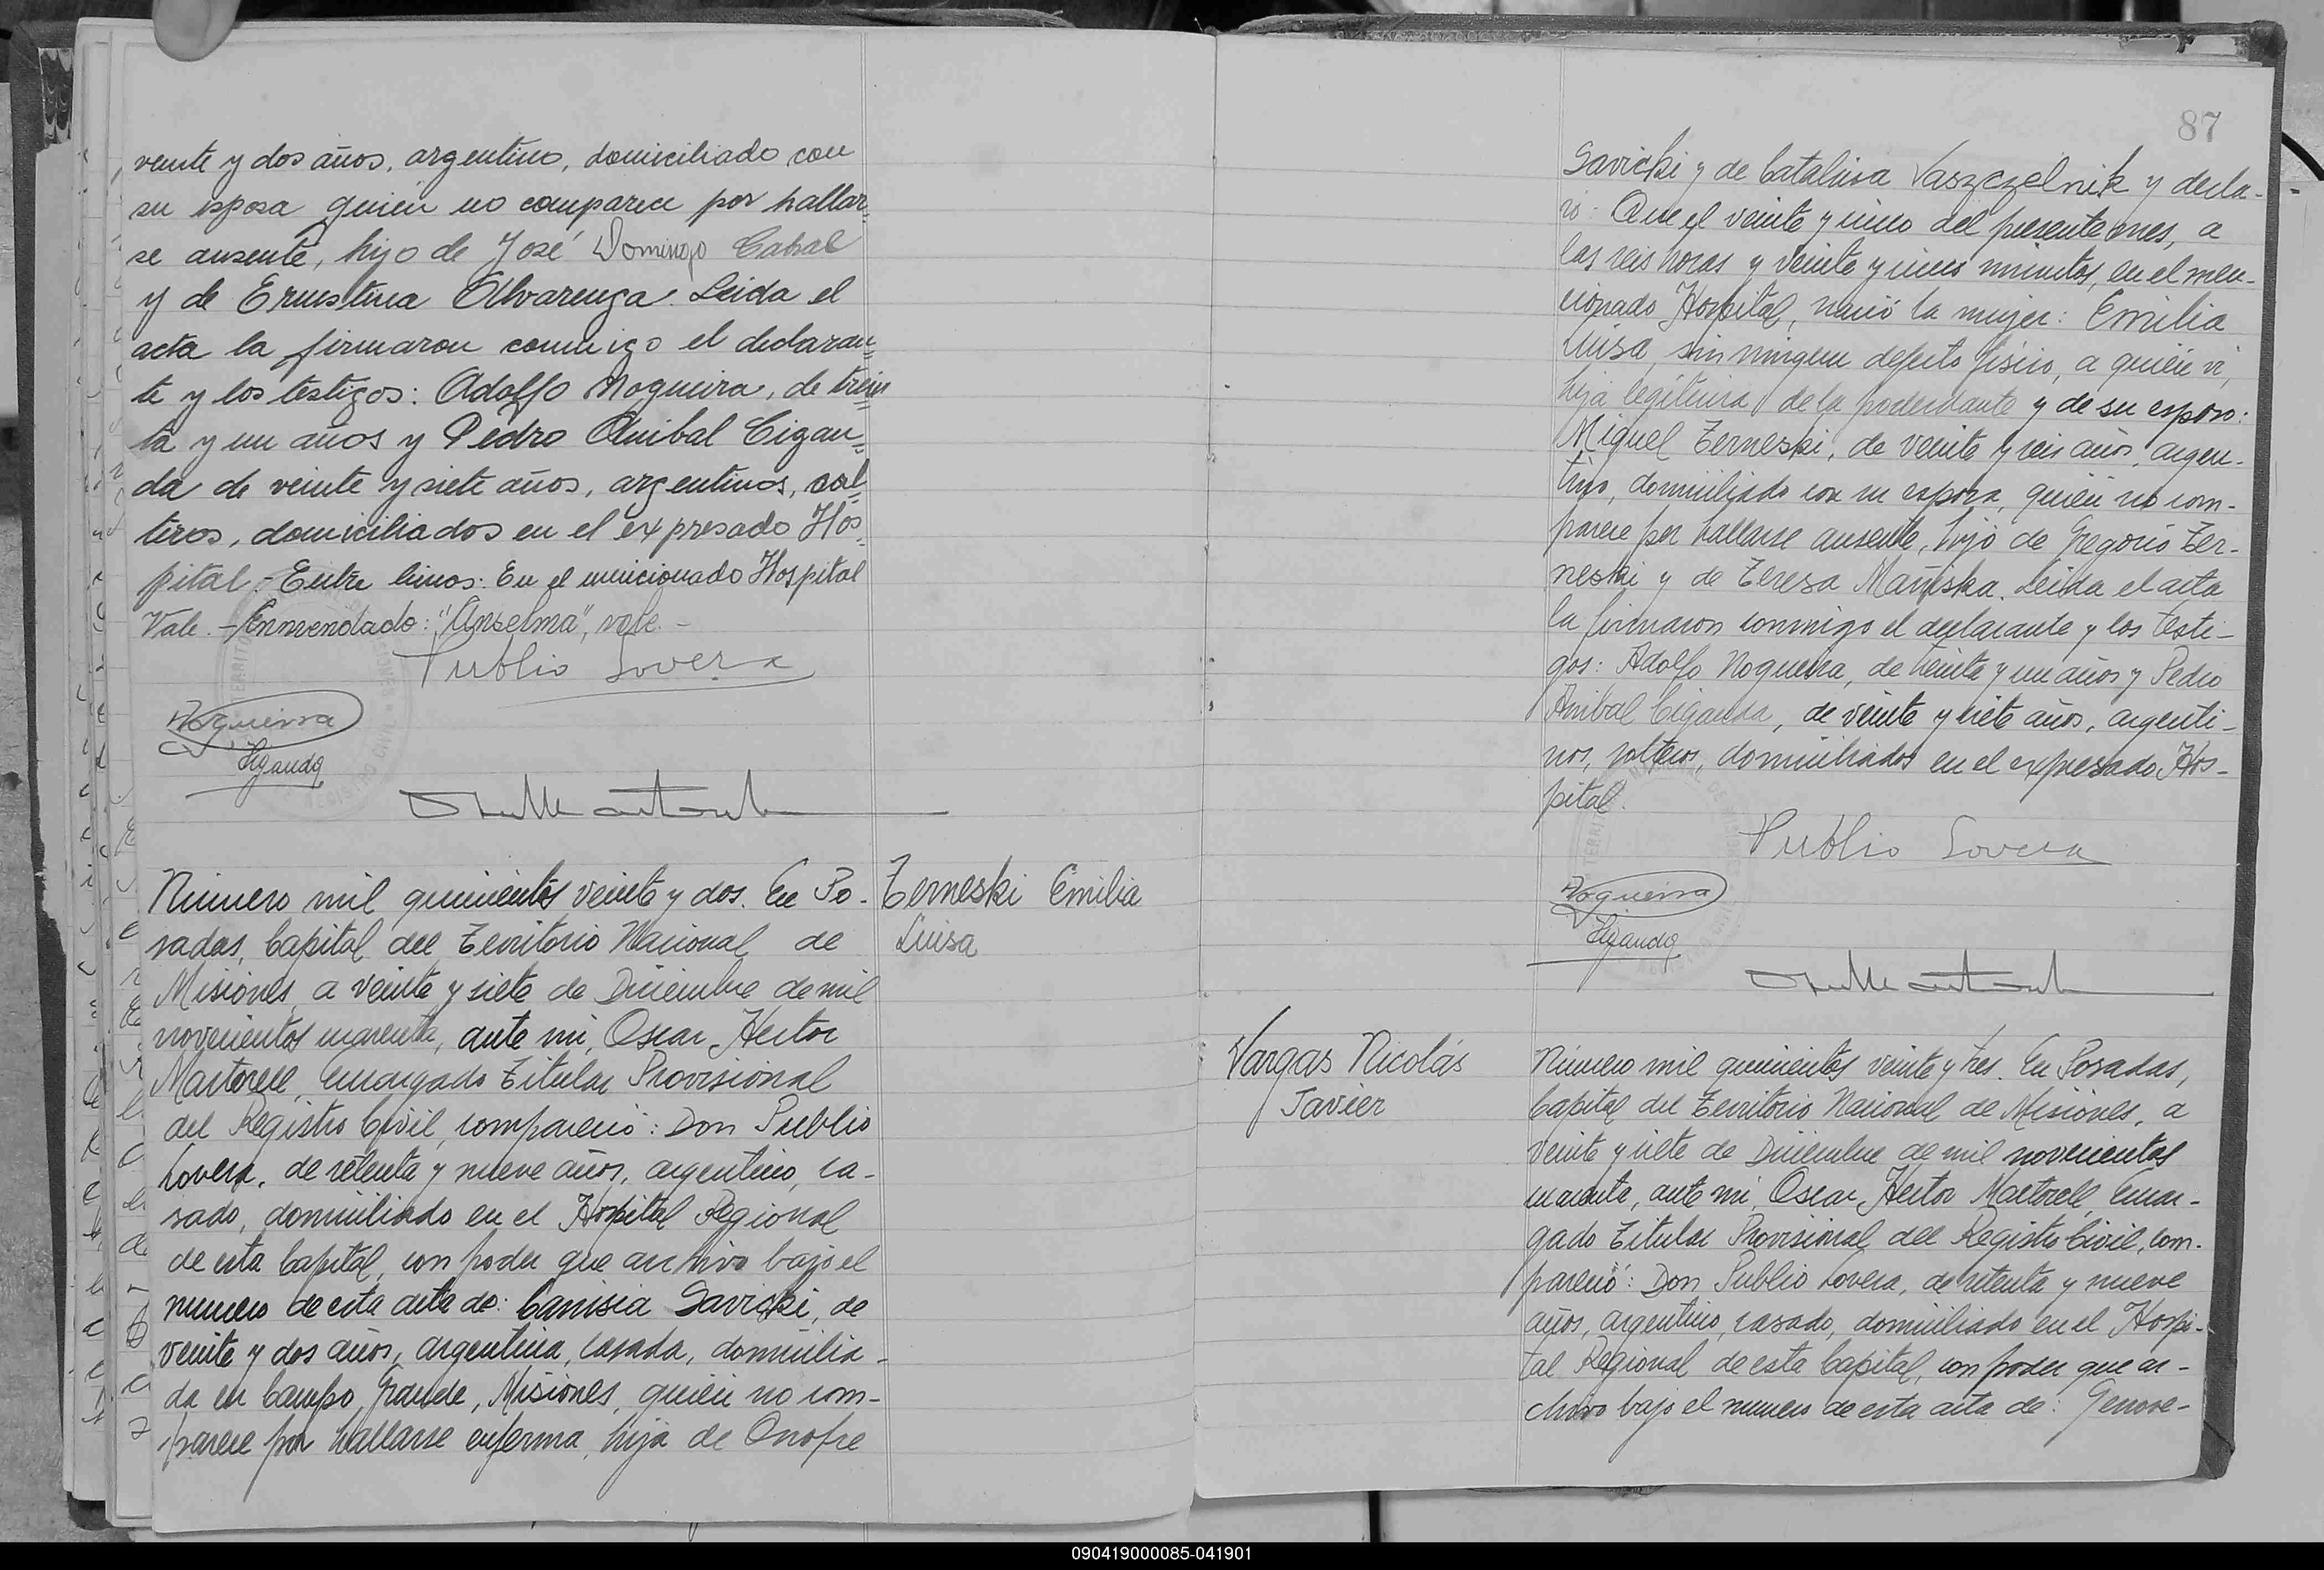 veinte y dos años, argentino, domiciliado con
su esposa quién no comparece por hallar=
se ausente, hijo de José Domingo Cabral
y de Ernestina Alvarenga. Leida el
acta la firmaron conmigo el declaran=
te y los testigos: Adolfo Nogueira, de trein=
ta y un años y Pedro Anibal Cigan=
da de veinte y siete años, argentinos, sol=
teros, domiciliados en el expresado Hos=
pital.- Entre lineas: En el mencionado Hospital
Vale.- Enmendado: "Anselma", vale.-
Publio Lovera
Nogueira
Ciganda
Número mil quinientos veinte y dos. En Po-
sadas, Capital del Territorio Nacional de
Misiones, a veinte y siete de Diciembre de mil
novecientos cuarenta, ante mi, Oscar Hector
Martorell, Encargado Titular Provisional
del Registro Civil, compareció: Don Publio
Lovera, de setenta y nueve años, argentino, ca-
sado, domiciliado en el Hospital Regional
de esta Capital, con poder que archivo bajo el
numero de esta acta de: Canisia Savicki, de
veinte y dos años, argentina, casada, domicilia-
da en Campo Grande, Misiones, quién no com-
parece por hallarse enferma, hija de Onofre
Zerneski Emilia
Luisa
87
Savicki y de Catalina Vaszczelnik y decla-
ró: Que el veinte y cinco del presente mes, a
las seis horas y veinte y cinco minutos, en el men-
cionado Hospital, nació la mujer: Emilia
Luisa, sin ningun defecto fisico, a quién vi,
hija legítima de la poderdante y de su esposo:
Miguel Zerneski, de veinte y seis años, argen-
tino, domiciliado con su esposa, quién no com-
parece por hallarse ausente, hijo de Gregorio Zer-
neski y de Teresa Mañiska. Leida el acta
la firmaron conmigo el declarante y los testi-
gos: Adolfo Nogueira, de treinta y un años y Pedro
Anibal Ciganda, de veinte y siete años, argenti-
nos, solteros, domiciliados en el expresado Hos-
pital.
Publio Lovera
Nogueira
Ciganda
Vargas Nicolás
Javier
Número mil quinientos veinte y tres. En Posadas,
Capital del Territorio Nacional de Misiones, a
veinte y siete de Diciembre de mil novecientos
cuarenta, ante mi, Oscar Hector Martorell, Encar-
gado Titular Provisional del Registro Civil, com-
pareció: Don Publio Lovera, de setenta y nueve
años, argentino, casado, domiciliado en el Hospi-
tal Regional de esta Capital, con poder que ar-
chivo bajo el numero de esta acta de: Genove-
090419000085-041901